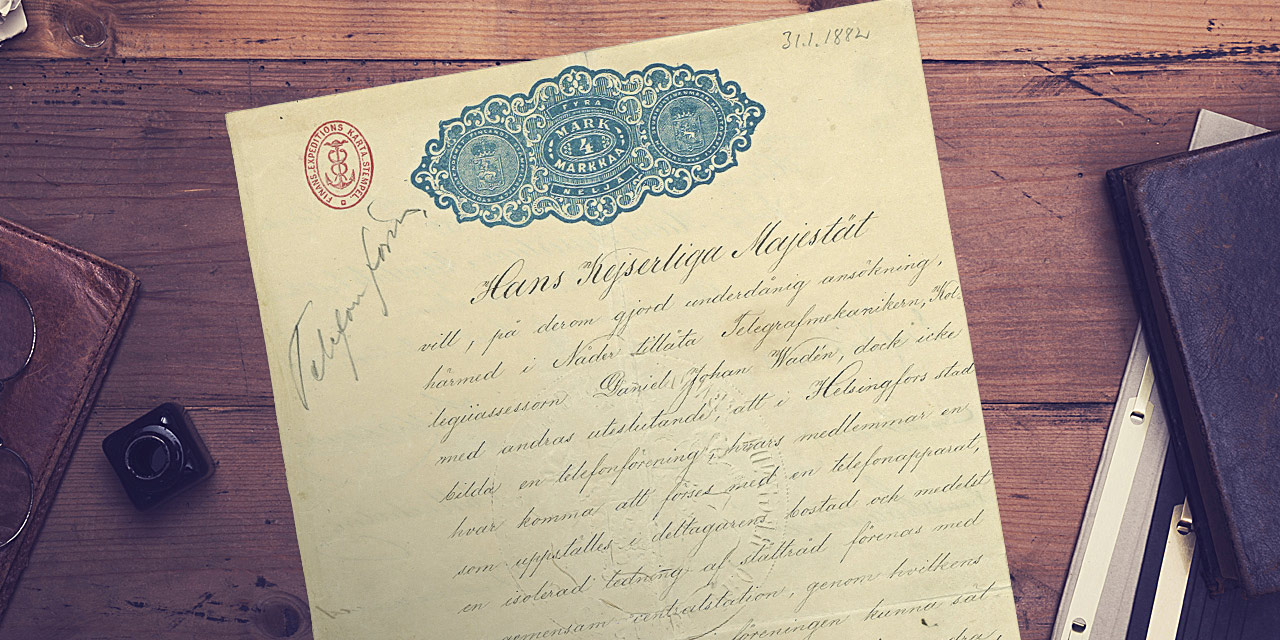 31.1.1882
FINANS-EXPEDITIONS KARTA STEMPEL
FYRA
MARK
4
MARKKAA
NELJÄ
Telefon
Hans Kejserliga Majestät
vill, på derom gjord underdånig ansökning,
härmed i Nåder tillåta Telegrafmekanikern, Kol-
legiiassessorn Daniel Johan Wadén, dock icke
med andras uteslutande, att i Helsingfors stad
bilda en telefonförening, hvars medlemmar en
hvar komma att förses med en telefonapparat,
som uppställes i deltagarens bostad och medelst
en isolerad ledning af ståltråd förenas med
gemensam centralstation, genom hvilkens
föreningen kunna sät